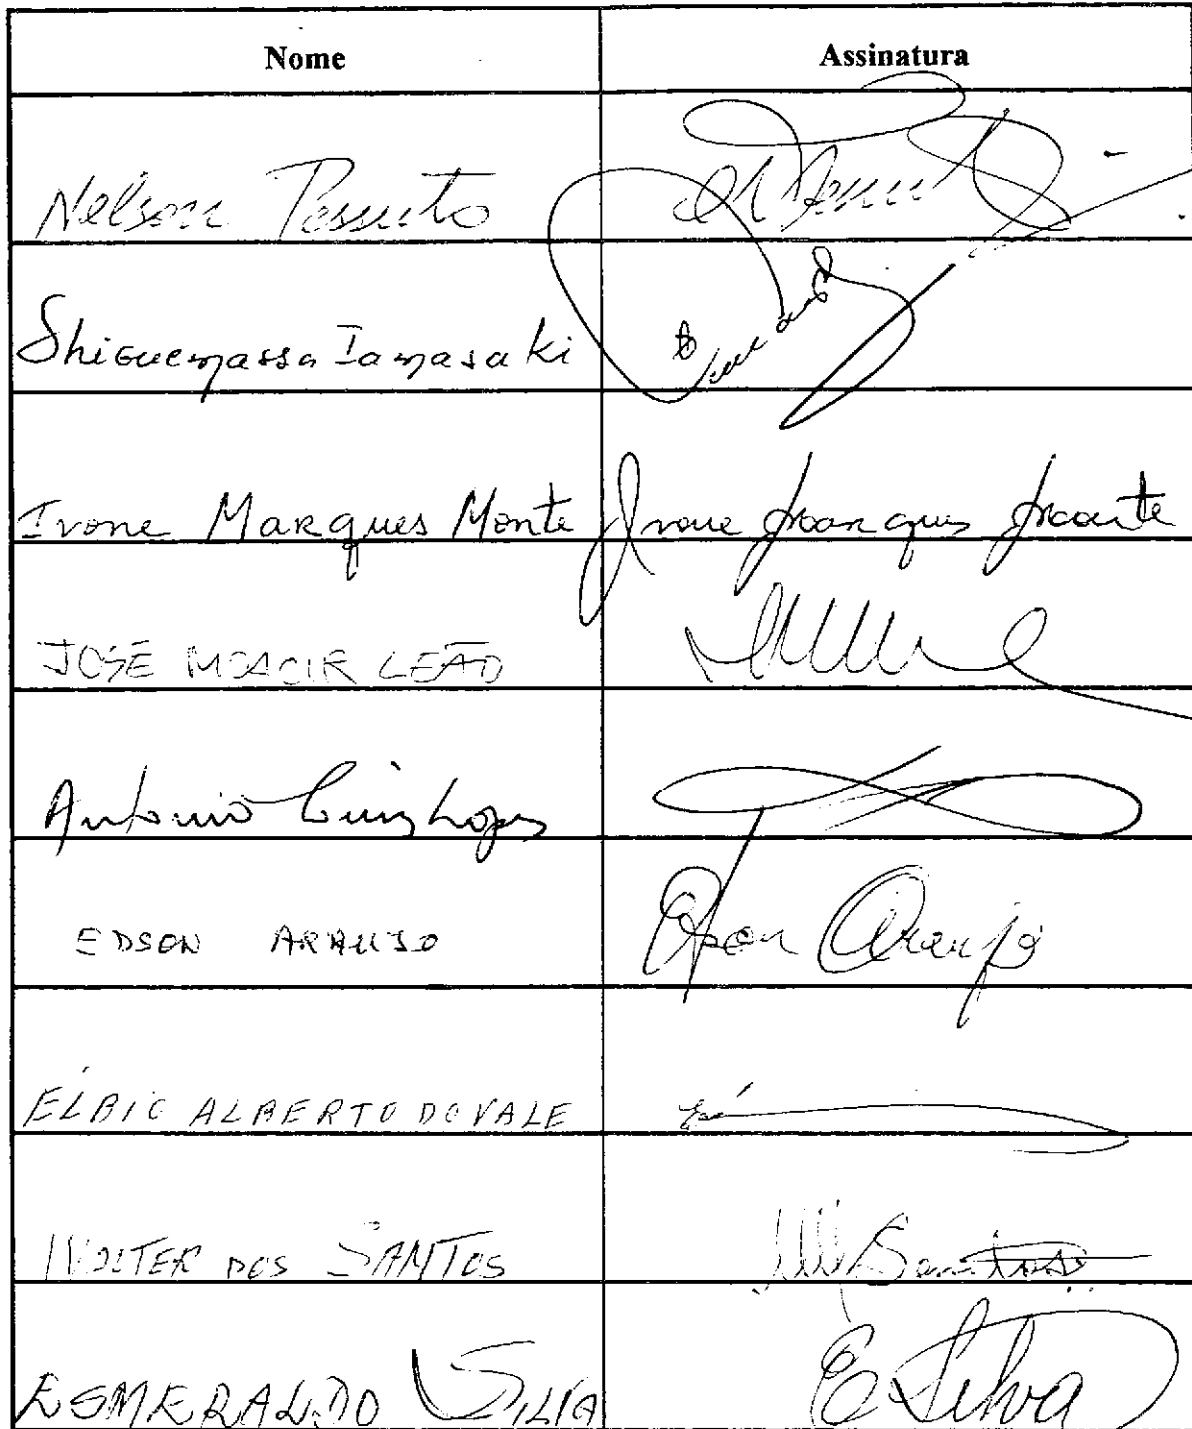 Nome Assinatura
Nelson Pessuto
Shiguemassa Iamasaki
Ivone Marques Monte Ivone Marques Monte
JOSÉ MOACIR LEÃO
Antonio Luiz Lopes
EDSON ARAUJO Edson Araujo
ÉLBIO ALBERTO DO VALE
WOLTER DOS SANTOS Santos
ESMERALDO SILVA E Silva